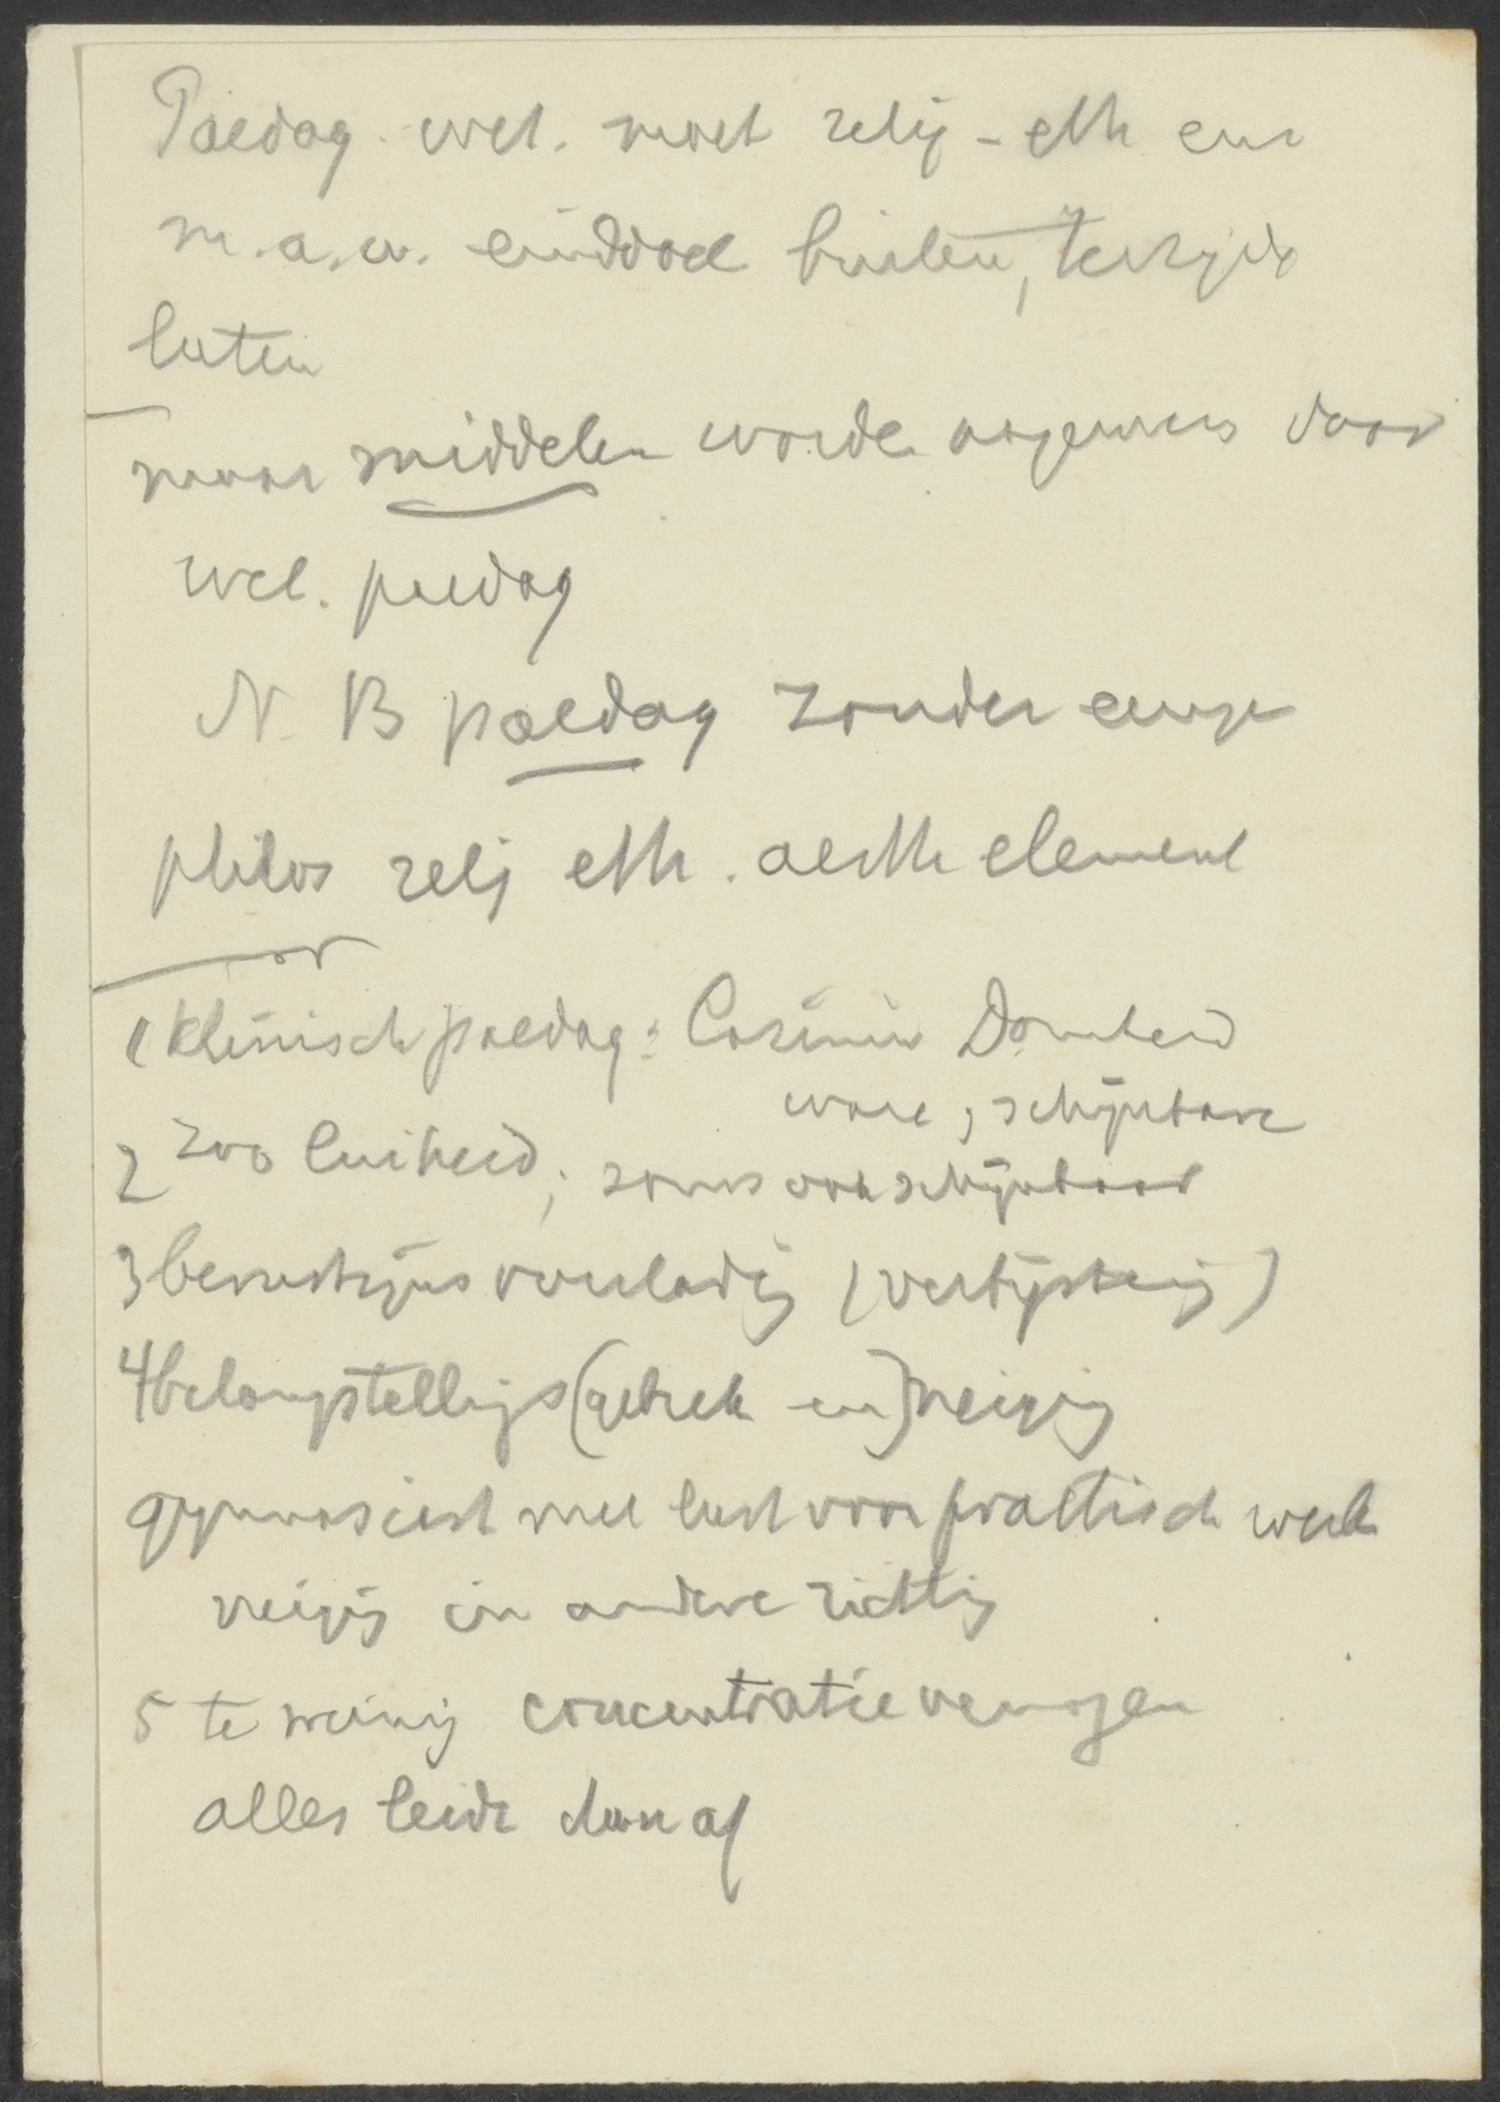 Paedag. wet. moet relig - eth en
m.a.w. einddoel buiten,
laten
maar middelen worde aangewezen door
wet. paedag
N B paedag zonder eenige
philos relig eth. aesth element
1 klinisch paedag:
ware, schijnbare
2 zoo luiheid; soms ook schijnbaar
3 bewustzijns
4 belangstellings (gebrek en) neiging
gymnasiast met lust voor practisch werk
neiging in andere richting
5 te weinig concentratie vermogen
alles leidt dan af